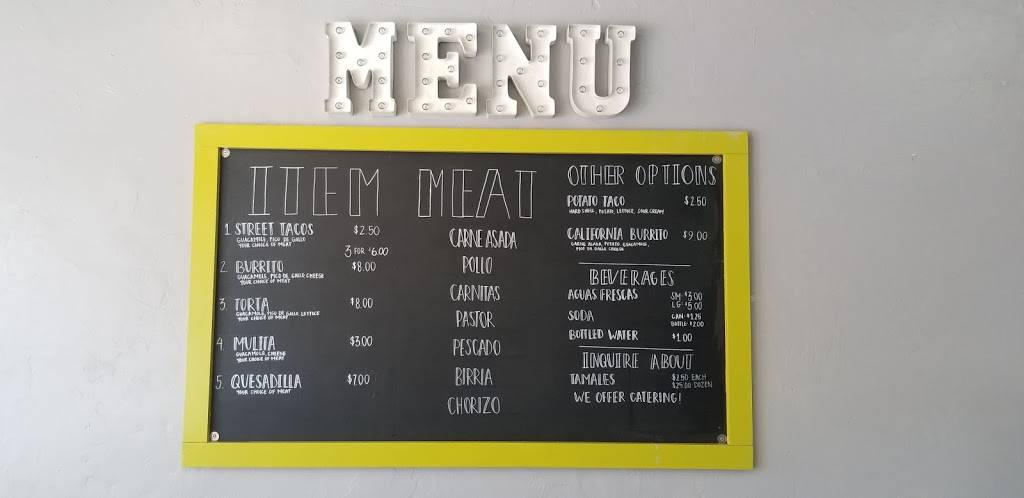 MENU
ITEM
1. STREET TACOS $2.50
GUACAMOLE, PICO DE GALLO
YOUR CHOICE OF MEAT
3 FOR $6.00
2. BURRITO $8.00
GUACAMOLE, PICO DE GALLO CHEESE
YOUR CHOICE OF MEAT
3. TORTA $8.00
GUACAMOLE, PICO DE GALLO, LETTUCE
YOUR CHOICE OF MEAT
4. MULITA $3.00
GUACAMOLE, CHEESE
YOUR CHOICE OF MEAT
5. QUESADILLA $7.00
YOUR CHOICE OF MEAT
MEAT
CARNE ASADA
POLLO
CARNITAS
PASTOR
PESCADO
BIRRIA
CHORIZO
OTHER OPTIONS
POTATO TACO $2.50
HARD SHELL, POTATO, LETTUCE, SOUR CREAM
CALIFORNIA BURRITO $9.00
CARNE ASADA, POTATO, GUACAMOLE,
PICO DE GALLO CHEESE
BEVERAGES
AGUAS FRESCAS SM $3.00
LG $5.00
SODA CAN $1.25
BOTTLE $2.00
BOTTLED WATER $1.00
INQUIRE ABOUT
TAMALES $2.50 EACH
$25.00 DOZEN
WE OFFER CATERING!